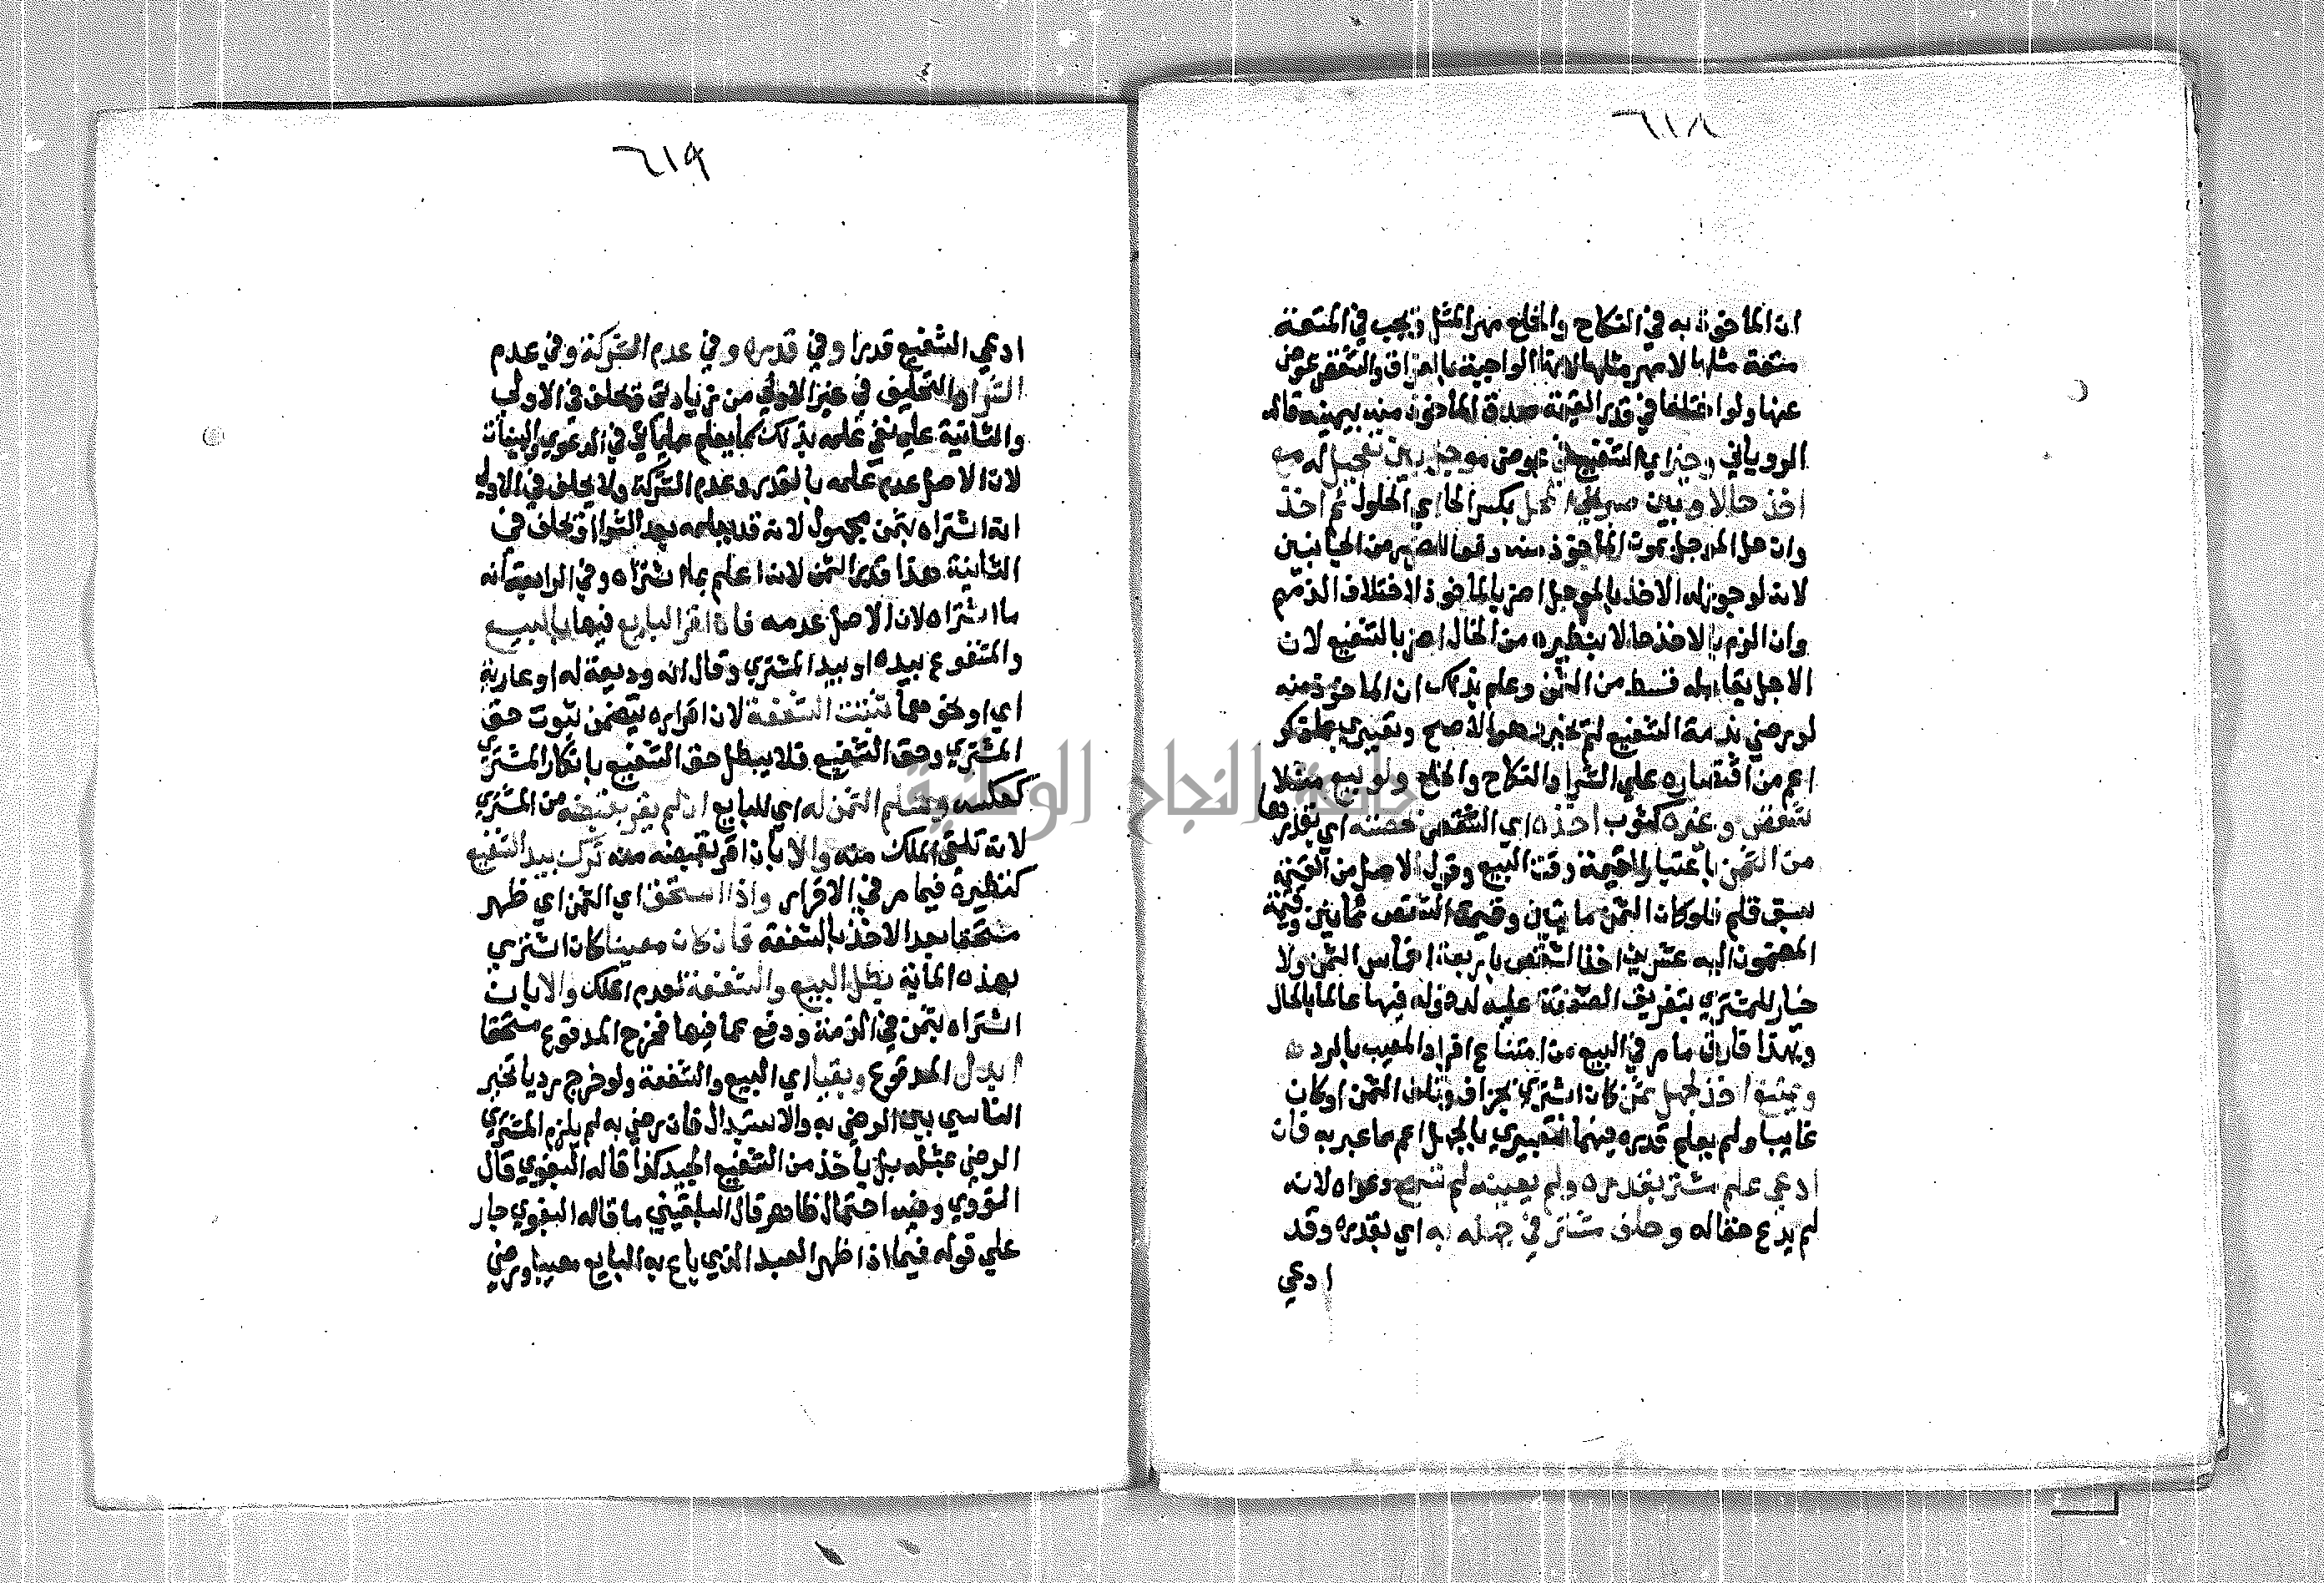 ٦١٨
ان الماخوذ به في النكاح والخلع مهر المثل ويجب في المتعة
متعة مثلها لا مهر مثلها لانها الواجبة بالفراق والشقص عوض
عنها ولو اختلفا في قدر القيمة صدق الماخوذ منه بيمينه قاله
الروياني وخير اي الشفيع في عوض موجل بين تعجيل له مع
اخذ حالا وبين صبر الي المحل بكسر الحا اي الحلول ثم اخذ
وان حل الموجل بموت الماخوذ منه دفعا للضرر من الجانبين
لانه لو جوز له الاخذ بالموجل اضر بالماخوذ لاختلاف الذمم
وان الزم بالاخذ حالا بنظيره من الحال اضر بالشفيع لان
الاجل يقابله قسط من الثمن وعلم بذلك ان الماخوذ منه
لو رضي بذمة الشفيع لم يخير وهو الاصح وتعبيري بما ذكر
اعم من اقتصاره علي الشرا والنكاح والخلع ولو بيع مثلا
شقص وغيره كثوب اخذه اي الشقص بحصته اي بقدرها
من الثمن باعتبار القيمة وقت البيع وقول الاصل من القيمة
سبق قلم فلو كان الثمن مايتين وقيمة الشقص ثمانين وقيمة
المضموم اليه عشرين اخذ الشقص باربعة اخماس الثمن ولا
خيار للمشتري بتفريق الصفقة عليه لدخوله فيها عالما بالحال
وبهذا فارق ما مر في البيع من امتناع افراد المعيب بالرد
ويمتنع اخذ لجهل ثمن كان اشتري بجزاف وتلف الثمن او كان
غايبا ولم يعلم قدره فيهما فتعبيري بالجهل اعم مما عبر به فان
ادعي علم مشتر بقدره ولم يعينه لم تسمع دعواه لانه
لم يدع حقا له وحلف مشتر في جهله به اي بقدره وقد
ادعي
٦١٩
ادعي الشفيع قدرا وفي قدره وفي عدم الشركة وفي عدم
الشرا والتحليف في غير الاولي من زيادتي فيحلف في الاولي
والثانية علي نفي علمه بذلك كما يعلم مما ياتي في الدعوي والبينات
لان الاصل عدم علمه بالقدر وعدم الشركة ولا يحلف في الاولي
انه اشتراه بثمن مجهول لانه قد يعلمه بعد الشرا ويحلف في
الثانية هذا قدر الثمن لانه اعلم بما اشتراه وفي الرابعة انه
ما اشتراه لان الاصل عدمه فان اقر البايع فيها بالبيع
والمشفوع بيده او بيد المشتري وقال انه وديعة له او عارية
اي او نحوهما ثبتت الشفعة لان اقراره يتضمن ثبوت حق
المشتري وحق الشفيع فلا يبطل حق الشفيع بانكار المشتري
كعكسه وسلم الثمن له اي للبايع ان لم يقر بقبضه من المشتري
لانه تلقي الملك منه والا بان اقر بقبضه منه ترك بيد الشفيع
كنظيره فيما مر في الاقرار واذا استحق اي الثمن اي ظهر
مستحقا بعد الاخذ بالشفعة فان كان معينا كان اشتري
بهذه الماية بطل البيع والشفعة لعدم الملك والا بان
اشتراه بثمن في الذمة ودفع عما فيها فخرج المدفوع مستحقا
ابدل المدفوع وبقيا اي البيع والشفعة ولو خرج رديا تخير
البايع بين الرضي به والاستبدال فان رضي به لم يلزم المشتري
الرضي بمثله بل ياخذ من الشفيع الجيد كذا قاله البغوي قال
النووي وفيه احتمال ظاهر قال البلقيني ما قاله البغوي جار
علي قوله فيما اذا ظهر العبد الذي باع به البايع معيبا ورضي
جامعة النجاح الوطنية